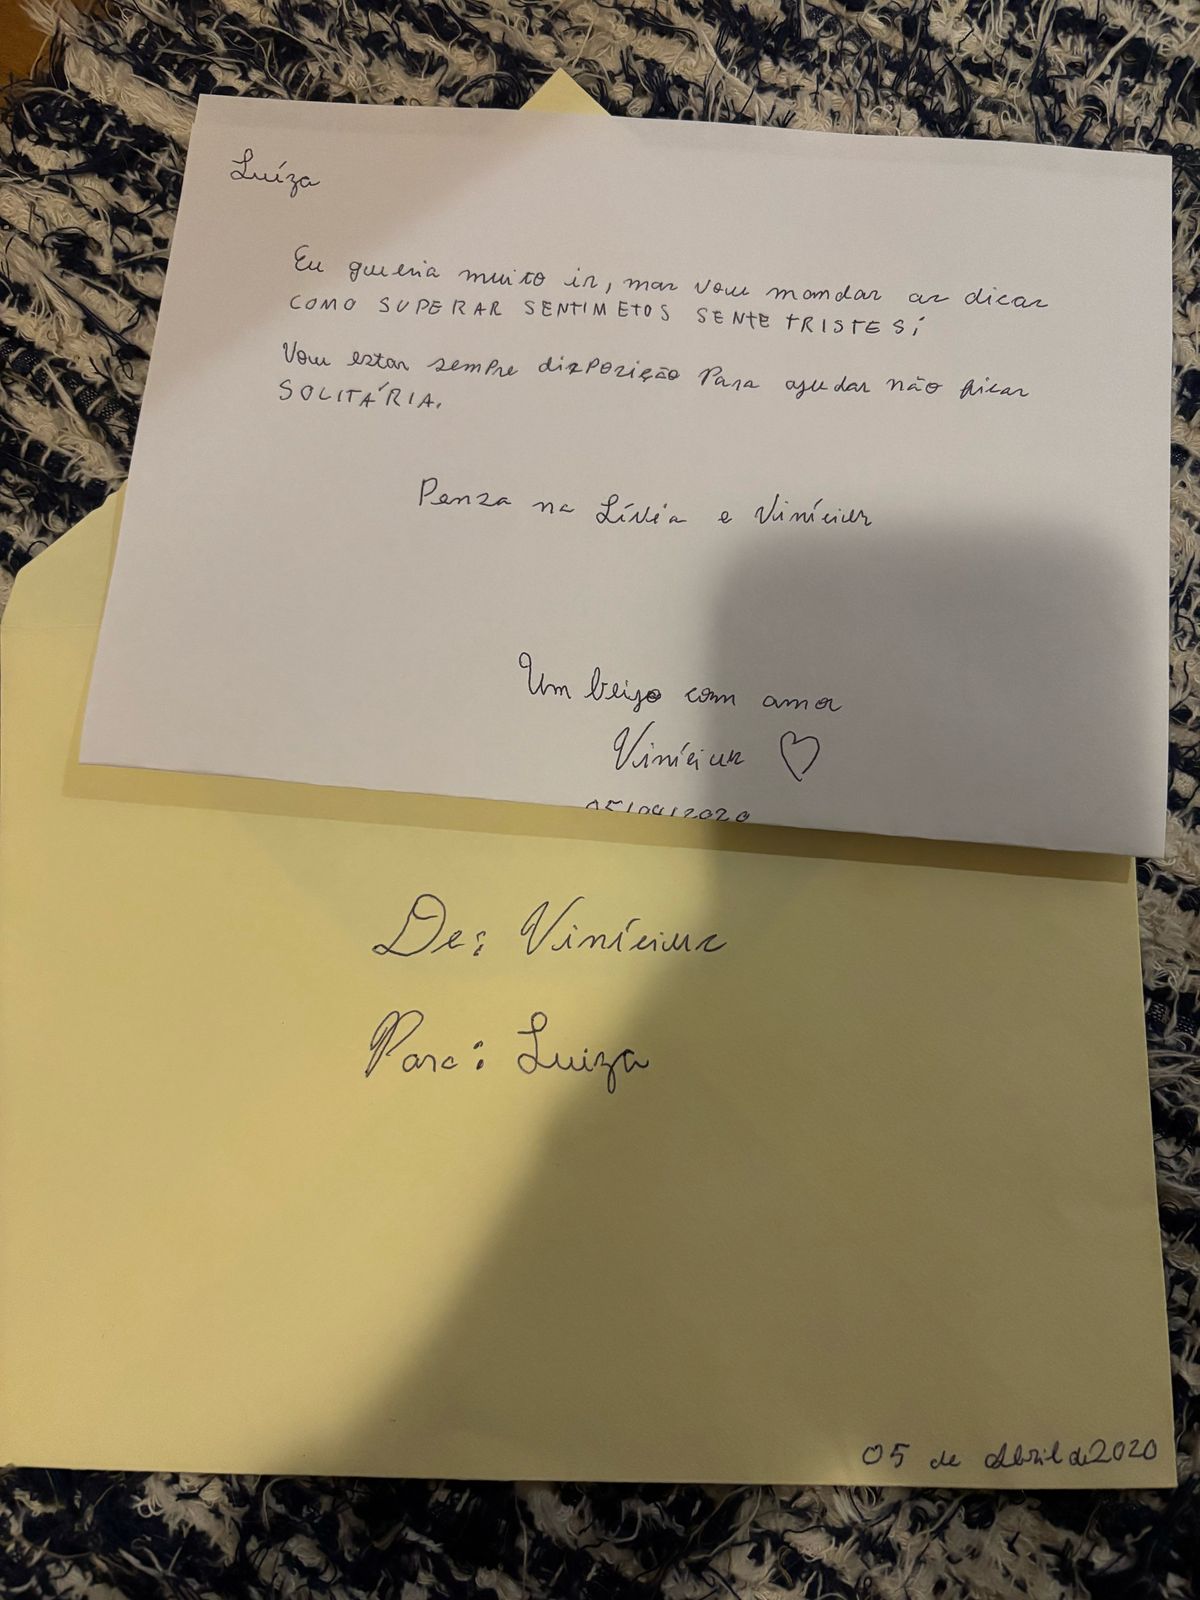 Luíza
Eu queria muito ir, mas vou mandar as dicas
COMO SUPERAR SENTIMETOS SENTE TRISTES;
Vou estar sempre dispozição Para ajudar não ficar
SOLITÁRIA.
Penza na Lívia e Vinícius
Um beijo com amor
Vinícius ♡
05/04/2020
De: Vinícius
Para: Luiza
05 de Abril de 2020